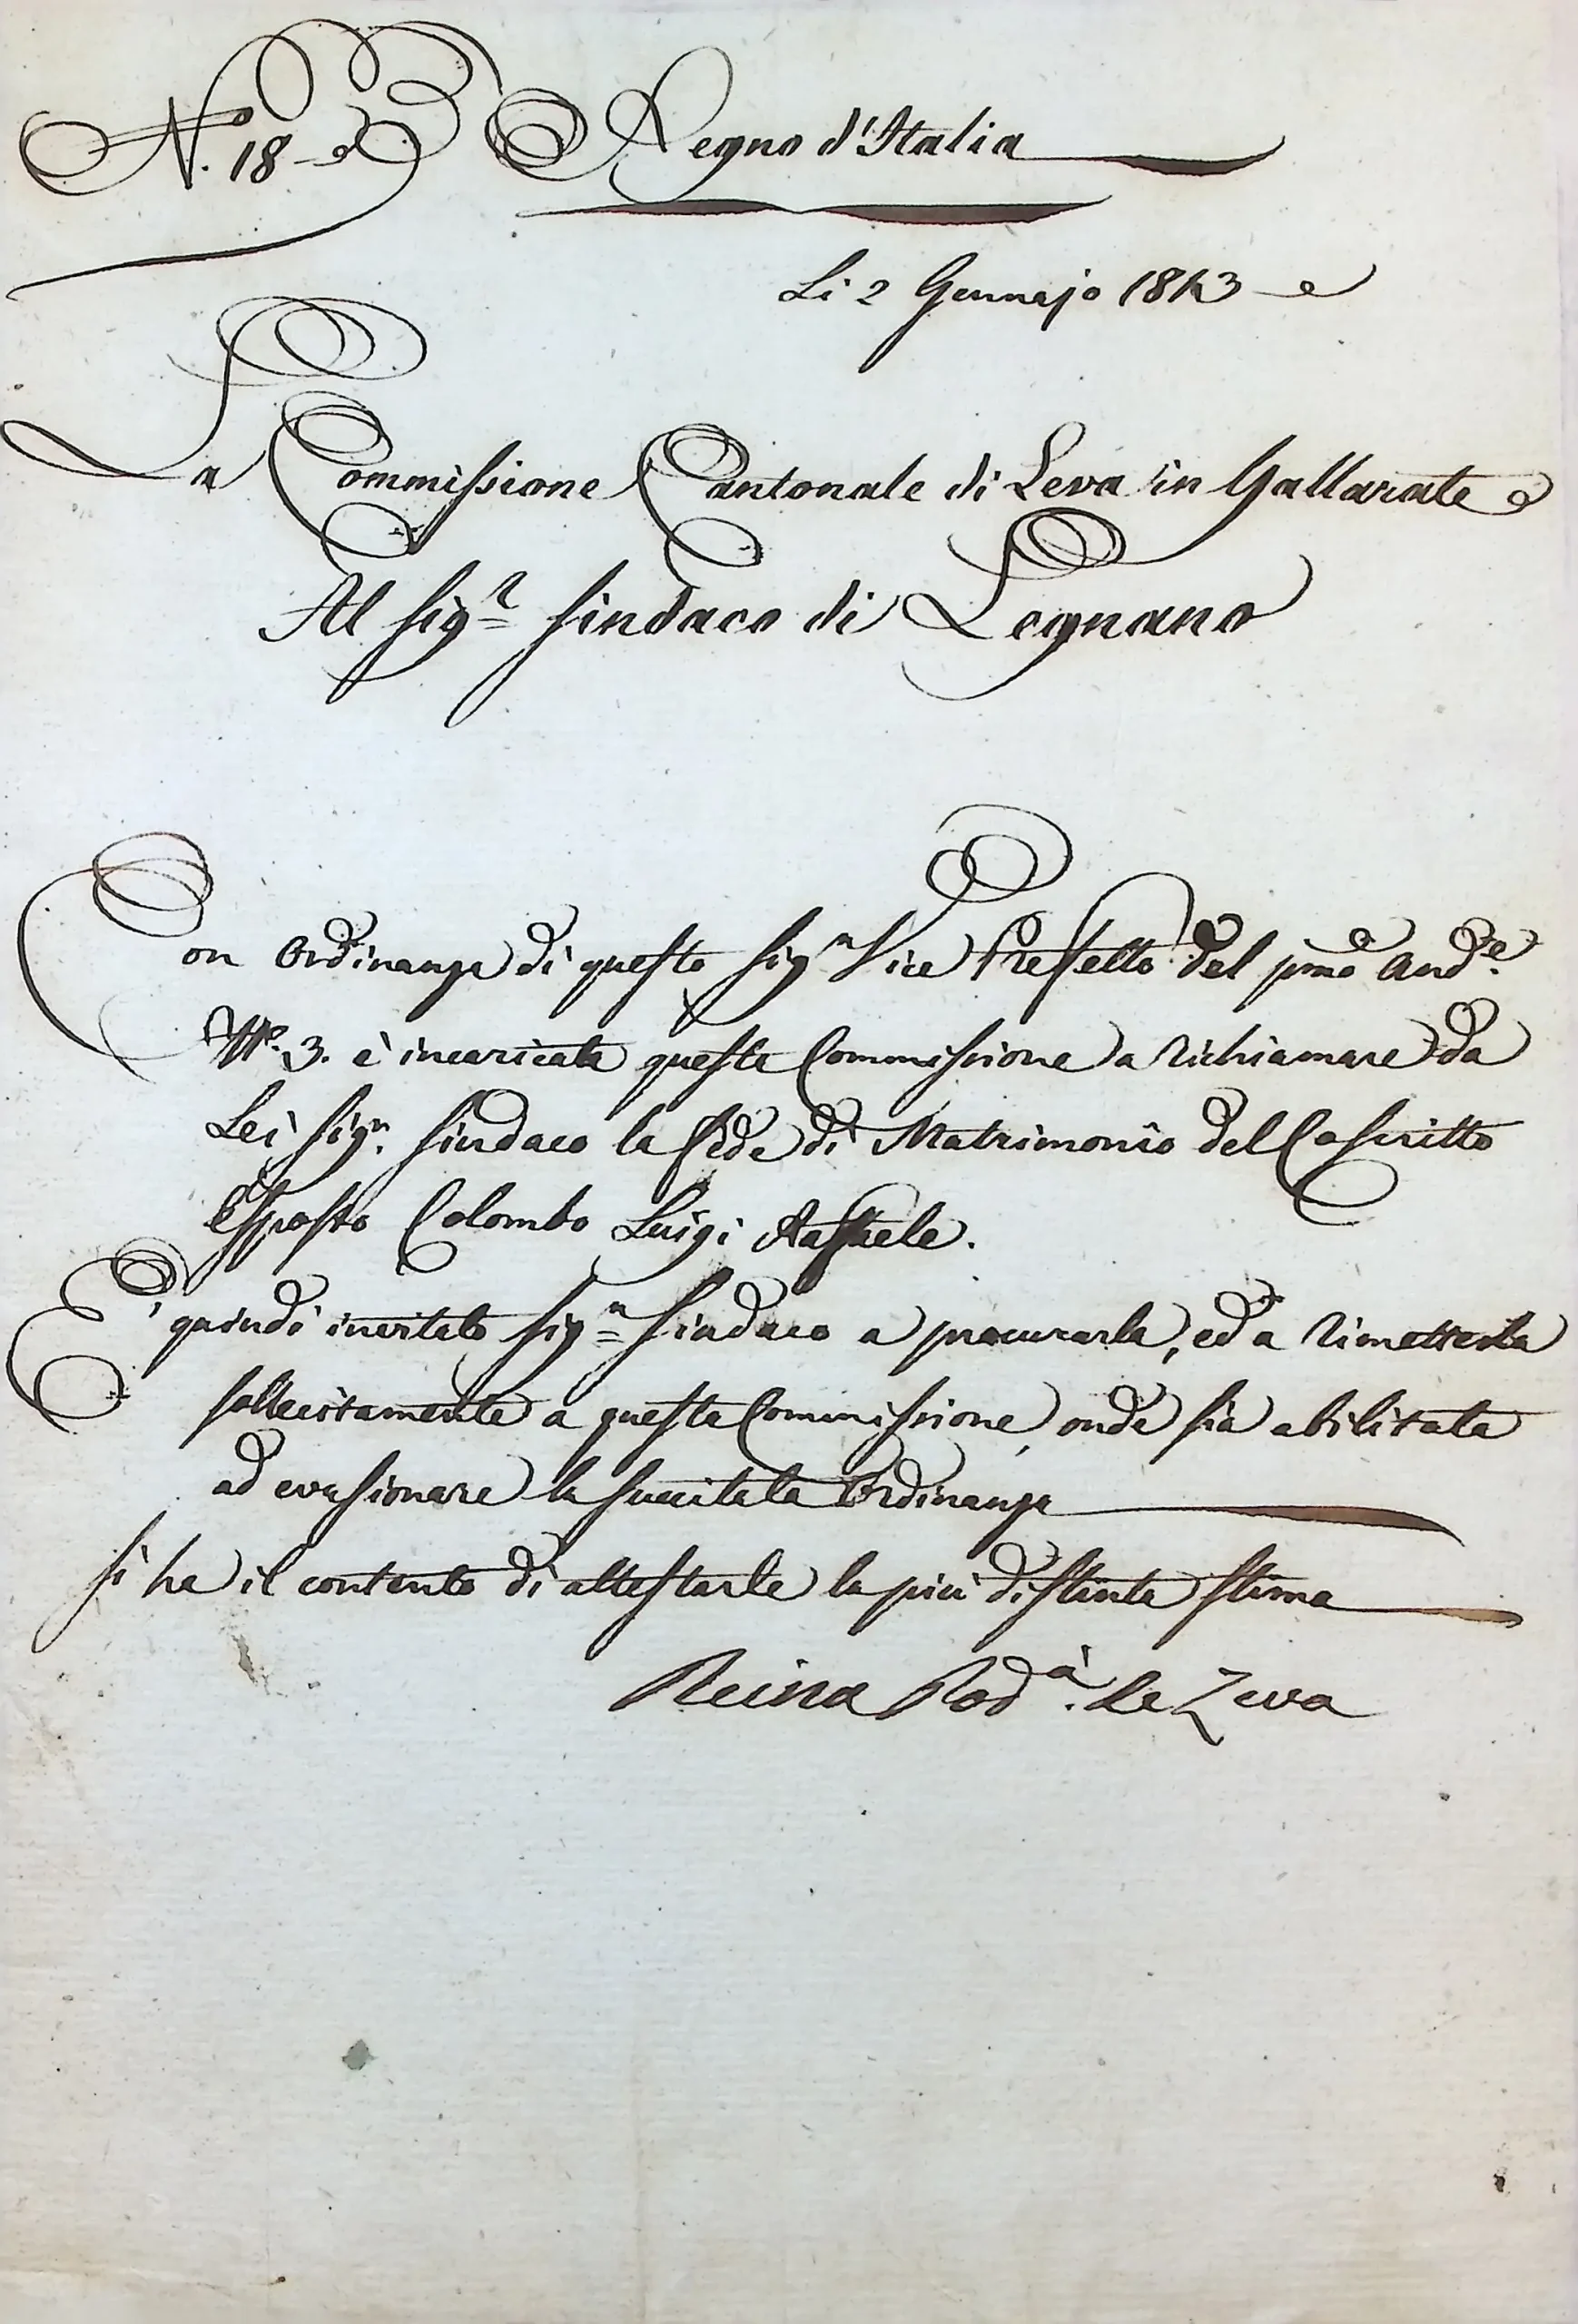 N.º 18 Regno d'Italia
Li 2 Gennajo 1813
La Commissione Cantonale di Leva in Gallarate
Al Sig.r Sindaco di Legnano
Con Ordinanza di questo Sig.r Vice Prefetto del pmo and.e
N.º 3. è incaricata questa Commissione a richiamare da
Lei Sig.r Sindaco la fede di Matrimonio del Coscritto
Esposto Colombo Luigi Raffaele.
E' quindi invitato Sig.r Sindaco a procurarla, ed a rimetterla
sollecitamente a questa Commissione, onde sia abilitata
ad evasionare la succitata Ordinanza
Si ha il contento di attestarle la più distinta stima
Reina Pod.à